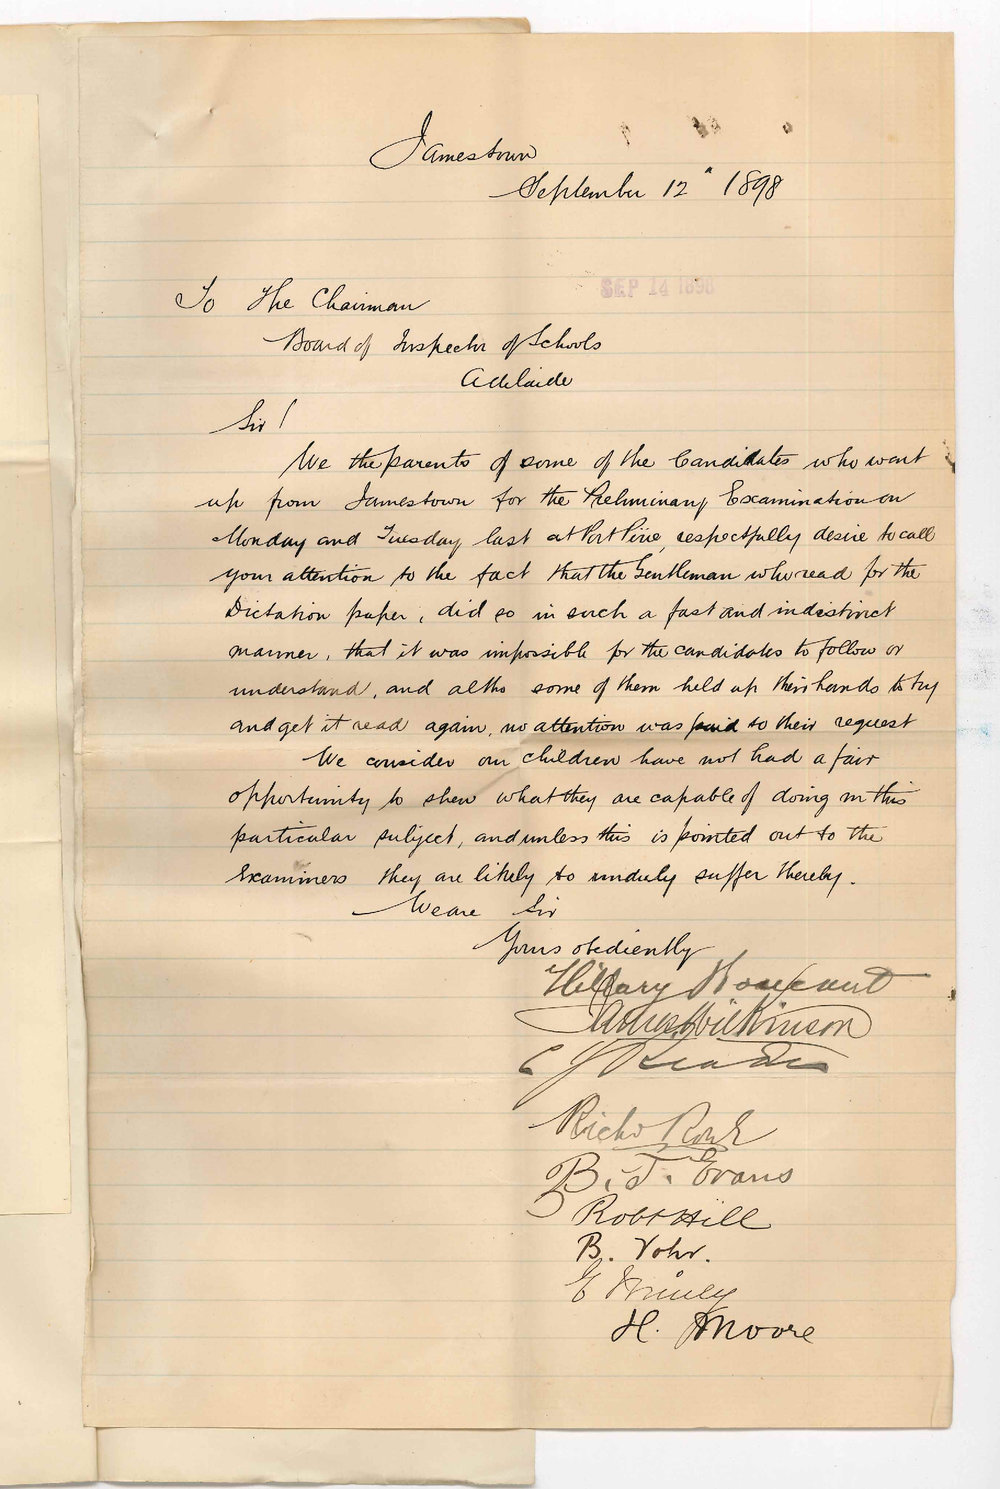 Jamestown
September 12" 1898
SEP 14 1898
To The Chairman
Board of Inspector of Schools
Adelaide
Sir!
We the parents of some of the Candidates who went
up from Jamestown for the Preliminary Examination on
Monday and Tuesday last at Port Pirie, respectfully desire to call
your attention to the fact that the Gentleman who read for the
Dictation paper, did so in such a fast and indistinct
manner, that it was impossible for the candidates to follow or
understand, and altho some of them held up their hands to try
and get it read again, no attention was paid to their request
We consider our children have not had a fair
opportunity to shew what they are capable of doing in this
particular subject, and unless this is pointed out to the
Examiners they are likely to unduly suffer thereby.
We are Sir
Yours obediently
Hillary Boucaut
James Wilkinson
C J
Richd
B. T. Evans
Robt Hill
B. Vohr.
E
H. Moore